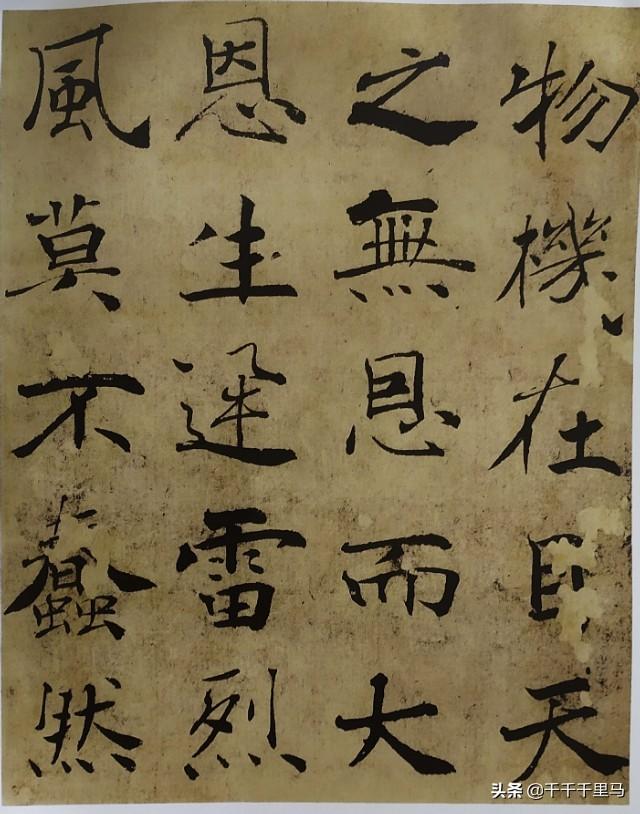 物機在目天
之無恩而大
恩生迅雷烈
風莫不蠢然
头条 @千千千里马